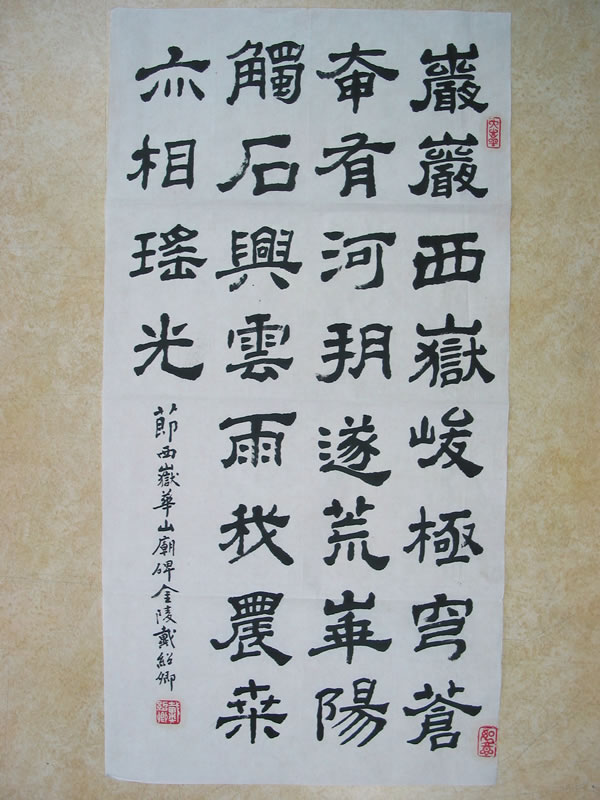 巖巖西嶽峻極穹蒼
奄有河朔遂荒華陽
觸石興雲雨我農桑
亦相瑤光
節西嶽華山廟碑金陵戴紹卿
如意